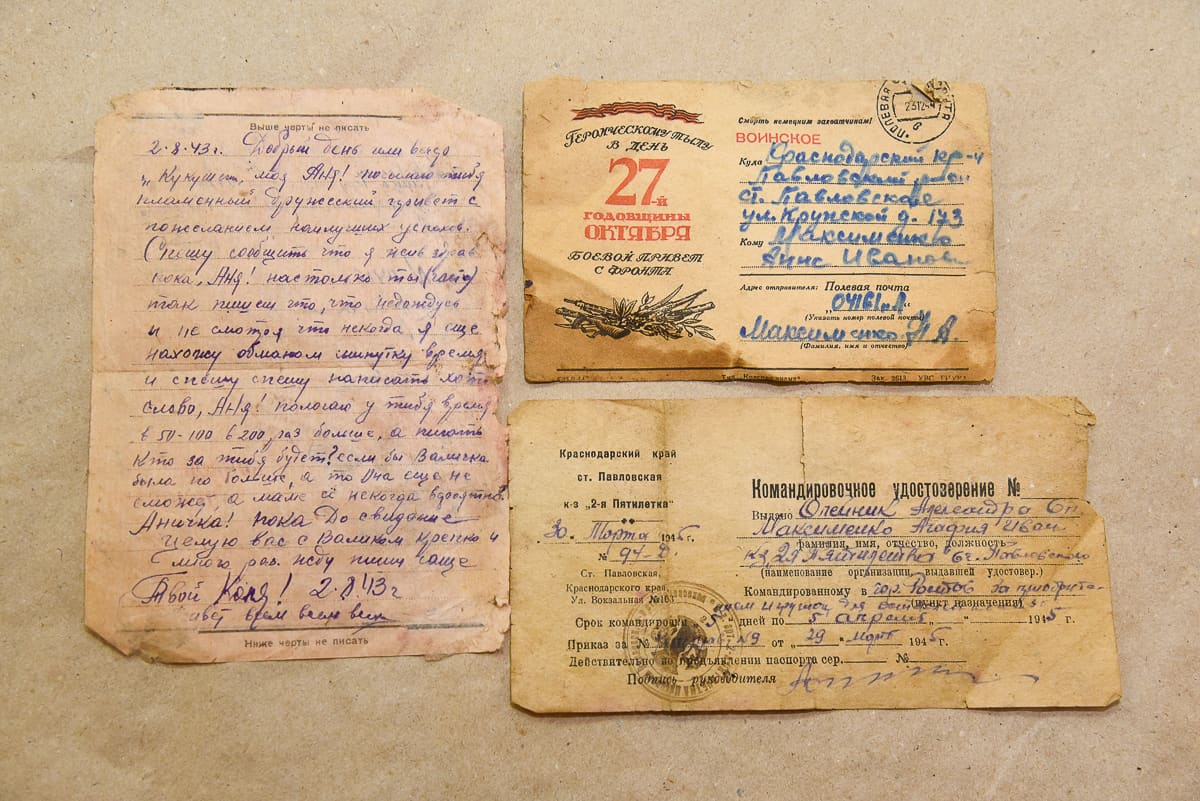 Выше черты не писать
2.8.43г. Добрый день или вечер
моя Аня! посылаю тибя
пламенный дружеский привет с
пожеланием наилучших успехов.
Спешу сообщить что я жив здрав
пока, Аня! настолько ты (часто)
так пишеш что, что недождусь
и не смотря что некогда я еще
нахожу обманом минутку время
и спешу спешу написать хоти
слово, Аня! пологаю у тибя время
в 50-100 в 200 раз больше, а писать
Кто за тибя будет? если бы Валичка
была по больше, а то Она еще не
сможет, а маме её некогда
Аничка! пока До свидание
целую вас с Валиком крепко и
много раз. жду пиши чаще
Твой Коля! 2.8.43г
всем всем
Ниже черты не писать
ГЕРОИЧЕСКОМУ ТЫЛУ
В ДЕНЬ
27-й
ГОДОВЩИНЫ
ОКТЯБРЯ
БОЕВОЙ ПРИВЕТ
С ФРОНТА
ПОЛЕВАЯ
Смерть немецким захватчикам!
ВОИНСКОЕ
Куда Краснодарский кр-й
Павловский
ст. Павловская
ул. Крупской д. 173
Кому Максименко
Анне Иванов
Адрес отправителя: Полевая почта
"04161 "
(Указать номер полевой почты)
Максименко Н А.
(Фамилия, имя и отчество)
Зак. 2613
Краснодарский край
ст. Павловская
к-з „2-я Пятилетка"
30. Марта 1945г.
№ 94-
Ст. Павловская,
Краснодарского края,
Ул. Вокзальная №
Командировочное удостозерение №
Выдано Олейник Александра
Максименко Агафия Иван
фамилия, имя, отчество, должность
кз 2я Пятилетка ст. Павловского
(наименование организации, выдавшей удостовер.)
Командированному в гор. Ростов за приобрита-
нием
(пункт назначения)
Срок командировки 5 дней по „ 5 апреля " 1945г.
Приказ за № №9 от „ 29 " март 1945г.
Действительно по предъявлении паспорта сер. №
Подпись руководителя